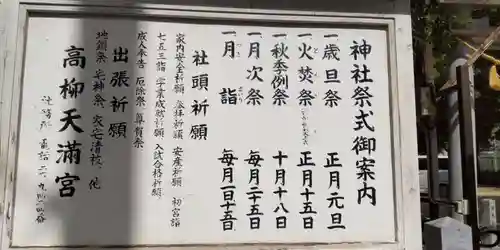 神社祭式御案内
一歳旦祭 正月元旦
一火焚祭 正月十五日
一秋季例祭 十月十八日
一月次祭 毎月二十五日
一月詣 毎月一日十五日
社頭祈願
家内安全祈願 登拝祈願 安産祈願 初宮詣
七五三詣 学業成就祈願 入試合格祈願
成人奉告 厄除祭 算賀祭
出張祈願
地鎮祭 安神祭 家宅清祓 他
高柳天満宮
社務所 電話